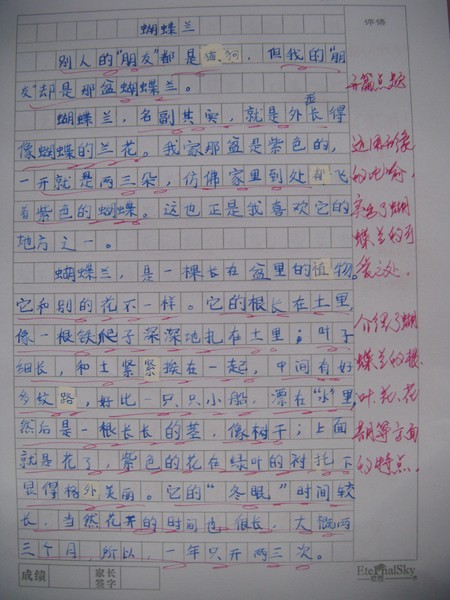 蝴蝶兰
评语
别人的“朋友”都是猫、狗，但我的“朋
友”却是那盆蝴蝶兰。
开篇点题
蝴蝶兰，名副其实，就是外表长得
像蝴蝶的兰花。我家那盆是紫色的，
一开就是两三朵，仿佛家里到处都飞
着紫色的蝴蝶。这也正是我喜欢它的
地方之一。
的比喻，
写出了蝴
蝶兰的可
爱之处。
蝴蝶兰，是一棵长在盆里的植物。
它和别的花不一样。它的根长在土里，
像一根铁爬子深深地扎在土里；叶子
细长，和土紧紧挨在一起，中间有好
多纹路，好比一只只小船，漂在“水”里，
然后是一根长长的茎，像树干；上面
就是花了，紫色的花在绿叶的衬托下
显得格外美丽。它的“冬眠”时间较
长，当然花开的时间也很长，大概两
三个月，所以，一年只开两三次。
介绍了蝴
蝶兰的根、
叶、花、花
期等方面
的特点。
成绩
家长
签字
EternalSky